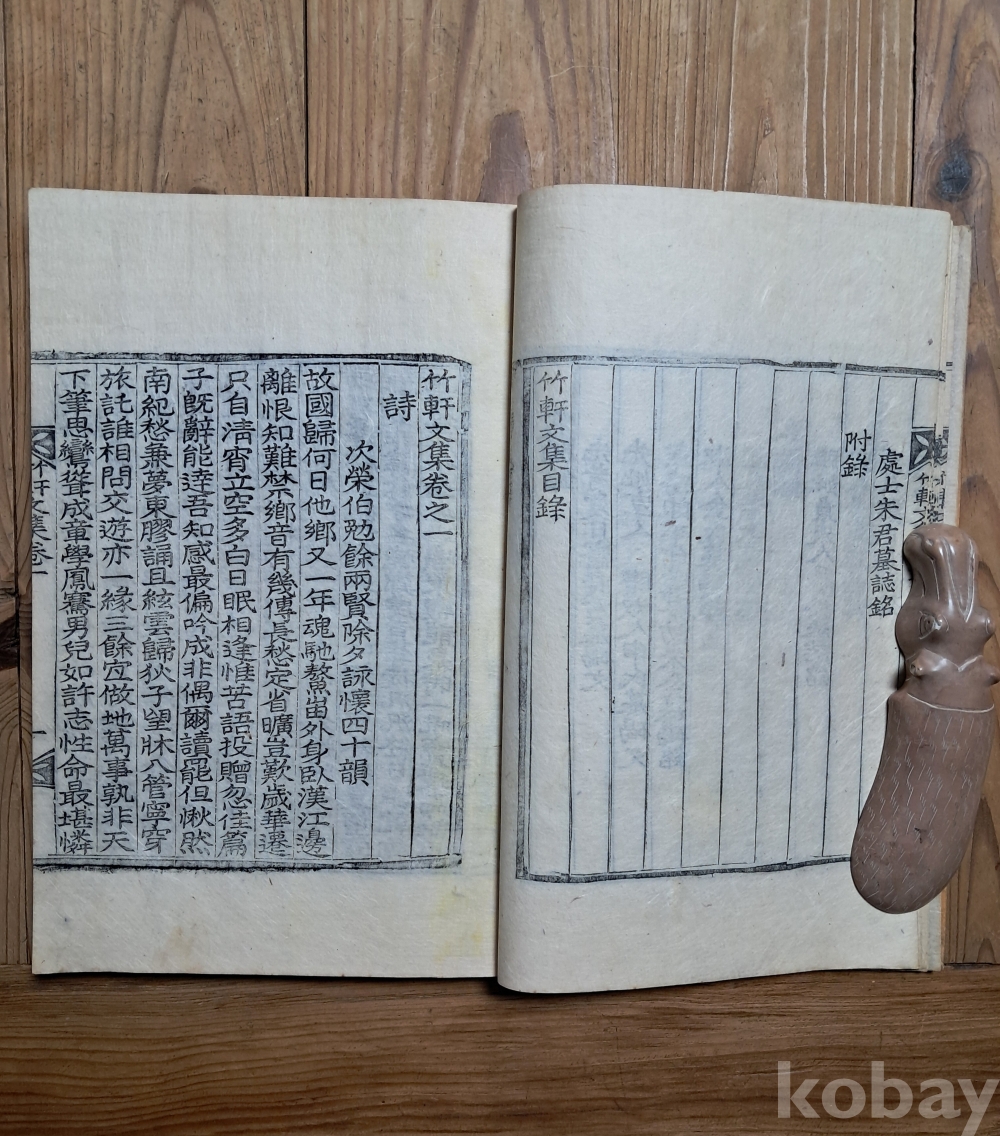 附錄
處士朱君墓誌銘
竹軒文集目錄
竹軒文集卷之一
詩
次榮伯勉餘兩賢除夕詠懷四十韻
故國歸何日他鄉又一年魂馳鰲峀外身臥漢江邊
離恨知難禁鄉音有幾傳長愁定省曠豈歎歲華遷
只自淸宵立空多白日眠相逢惟苦語投贈忽佳篇
子旣辭能達吾知感最偏吟成非偶爾讀罷但愀然
南紀愁兼夢東膠誦且絃雲歸狄子望牀八管寧穿
旅託誰相問交遊亦一緣三餘宜做地萬事孰非天
下筆思鸞聳成童學鳳騫男兒如許志性命最堪憐
竹軒文集卷一
kobay